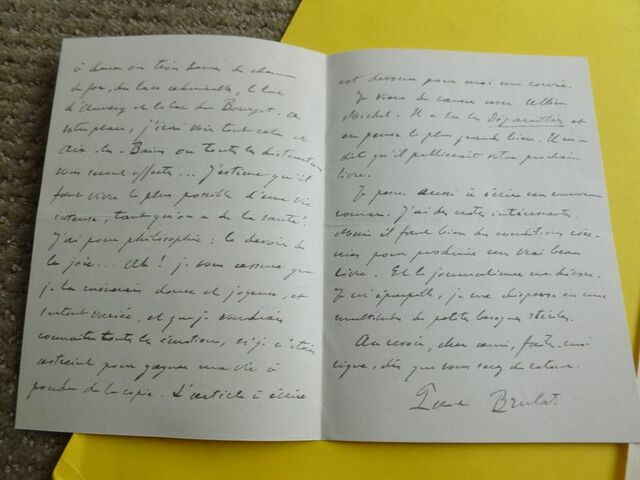 à deux ou trois heures de chemin
de fer, des lacs admirables, le lac
d'Annecy et le lac du Bourget. A
votre place, j'irai voir tout cela et
Aix-les-Bains où toutes les distractions
vous seront offertes... J'estime qu'il
faut vivre le plus possible d'une vie
intense, tant qu'on a de la santé!
J'ai pour philosophie: le devoir de
la joie... Ah! je vous assure que
je la mènerais douce et joyeuse, et
surtout variée, et que je voudrais
connaître toutes les émotions, si je n'étais
astreint pour gagner ma vie à
pondre de la copie. L'article à écrire
est devenu pour moi un
Je viens de causer avec Albin
Michel. Il a lu les et
en pense le plus grand bien. Il m'a
dit qu'il publierait votre prochain
livre.
Je pense aussi à écrire un nouveau
roman. J'ai des notes intéressantes.
Mais il faut bien des conditions
pour produire un vrai beau
livre. Et le journalisme me dévore.
Je m'éparpille, je me disperse en une
multitude de petites besognes stériles.
Au revoir, cher ami, faites-moi
signe, dès que vous serez de retour.
Paul Brulat